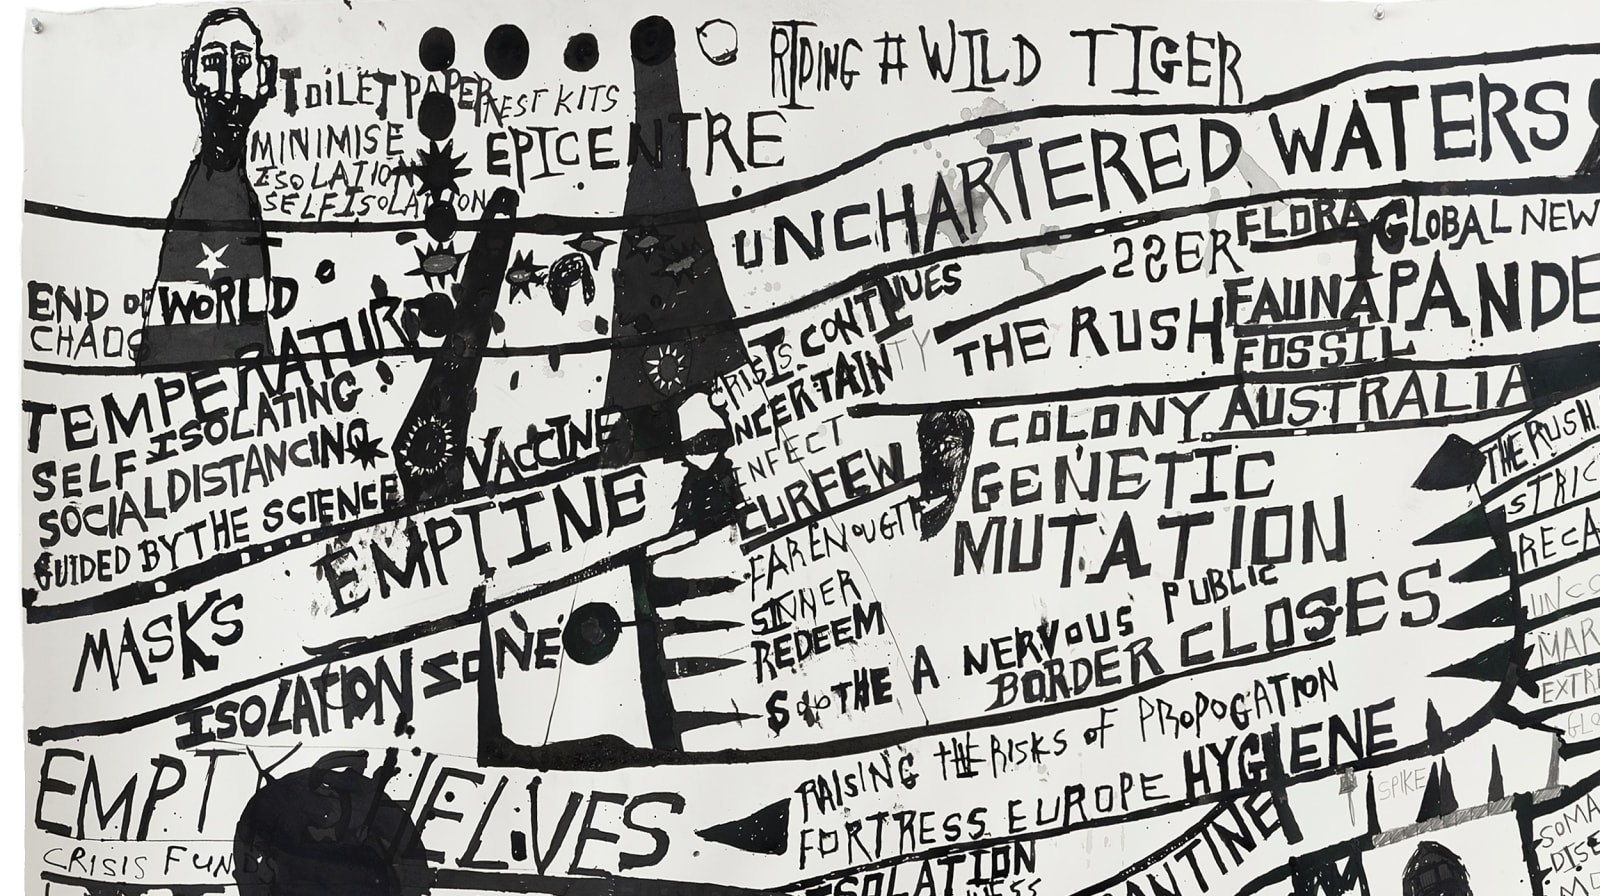 TOILET PAPER
TEST KITS
MINIMISE
ISOLATION
SELFISOLATION
EPICENTRE
RIDING A WILD TIGER
UNCHARTERED WATERS
END OF WORLD
CHAOS
TEMPERATURE
SELF ISOLATING
SOCIAL DISTANCING
GUIDED BY THE SCIENCE
VACCINE
EMPTINE
MASKS
ISOLATION SO NE
EMPTY SHELVES
CRISIS FUNDS
CRISIS CONTINUES
UNCERTAINTY
INFECT
CURFEW
FAR ENOUGTH
SINNER
REDEEM
SOOTHE A NERVOUS PUBLIC
BORDER CLOSES
THE RUSH
FLORA
FAUNA
FOSSIL
GLOBAL NEW
PANDE
COLONY AUSTRALIA
GENETIC
MUTATION
RAISING THE RISKS OF PROPOGATION
FORTRESS EUROPE HYGIENE
ISOLATION
NESS
ANTINE
THE RUSH
STRIC
RECA
MAR
EXTRE
GLO
SPIKE
SOMA
DISE